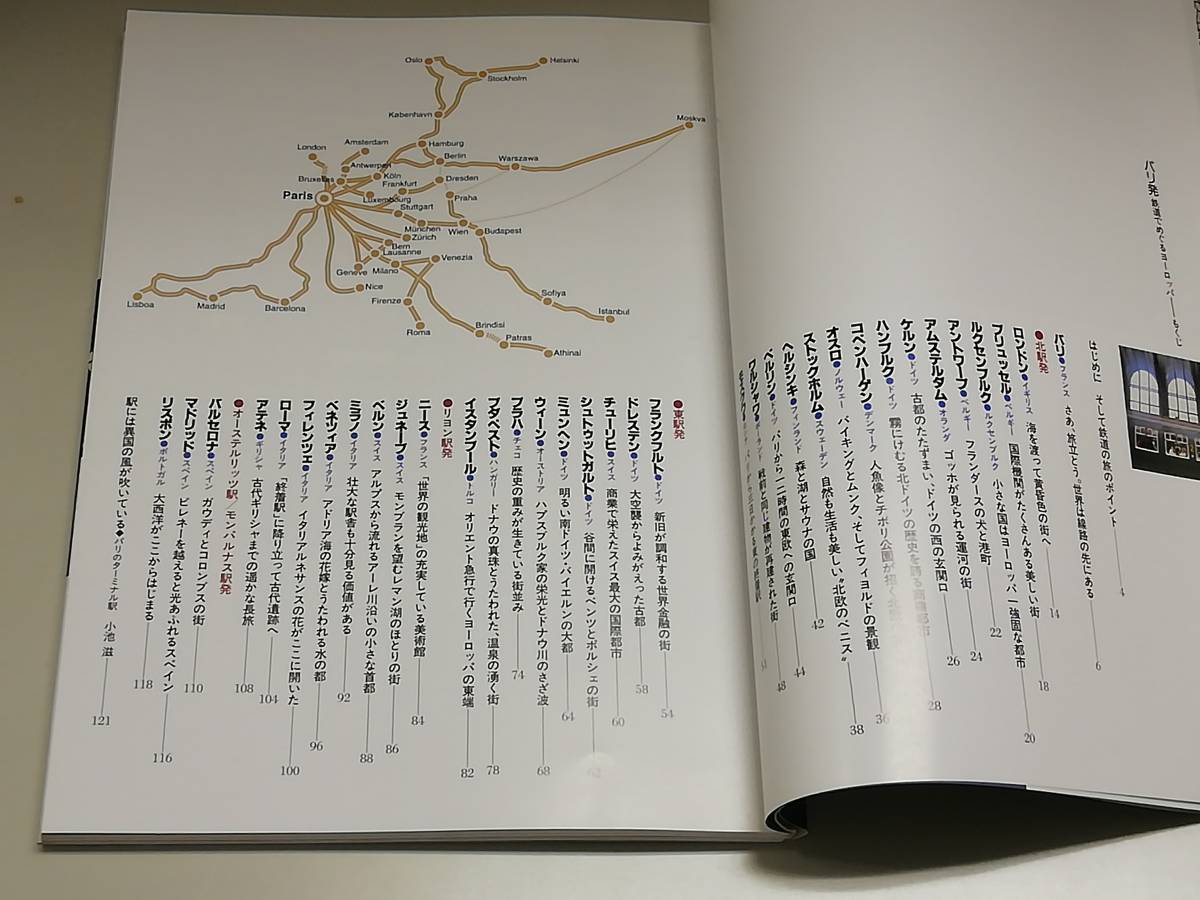 パリ発 鉄道でめぐるヨーロッパ――もくじ
はじめに そして鉄道の旅のポイント 4
パリ●フランス さあ、旅立とう。世界は線路の先にある 6
●北駅発
ロンドン●イギリス 海を渡って黄昏色の街へ 14
ブリュッセル●ベルギー 国際機関がたくさんある美しい街 18
ルクセンブルク●ルクセンブルク 小さな国はヨーロッパ一強固な都市 20
アントワープ●ベルギー フランダースの犬と港町 22
アムステルダム●オランダ ゴッホが見られる運河の街 24
ケルン●ドイツ 古都のたたずまい、ドイツの西の玄関口 26
ハンブルク●ドイツ 霧にけむる北ドイツの歴史を誇る商業都市 28
コペンハーゲン●デンマーク 人魚像とチボリ公園が招く 36
オスロ●ノルウェー バイキングとムンク、そしてフィヨルドの景観 38
ストックホルム●スウェーデン 自然も生活も美しい“北欧のベニス” 42
ヘルシンキ●フィンランド 森と湖とサウナの国 44
ベルリン●ドイツ パリから一二時間の東欧への玄関口 48
ワルシャワ●ポーランド 戦前と同じ建物が再建された街
●東駅発
フランクフルト●ドイツ 新旧が調和する世界金融の街 54
ドレスデン●ドイツ 大空襲からよみがえった古都 58
チューリヒ●スイス 商業で栄えたスイス最大の国際都市 60
シュトゥットガルト●ドイツ 谷間に開けるベンツとポルシェの街 62
ミュンヘン●ドイツ 明るい南ドイツ・バイエルンの大都 64
ウィーン●オーストリア ハプスブルク家の栄光とドナウ川のさざ波 68
プラハ●チェコ 歴史の重みが生きている街並み 74
ブダペスト●ハンガリー ドナウの真珠とうたわれた、温泉の湧く街 78
イスタンブール●トルコ オリエント急行で行くヨーロッパの東端 82
●リヨン駅発
ニース●フランス 「世界の観光地」の充実している美術館 84
ジュネーブ●スイス モンブランを望むレマン湖のほとりの街 86
ベルン●スイス アルプスから流れるアーレ川沿いの小さな首都 88
ミラノ●イタリア 壮大な駅舎も十分見る価値がある 92
ベネツィア●イタリア アドリア海の花嫁とうたわれる水の都 96
フィレンツェ●イタリア イタリアルネサンスの花がここに開いた 100
ローマ●イタリア 「終着駅」に降り立って古代遺跡へ 104
アテネ●ギリシャ 古代ギリシャまでの遥かな長旅 108
●オーステルリッツ駅/モンパルナス駅発
バルセロナ●スペイン ガウディとコロンブスの街 110
マドリッド●スペイン ピレネーを越えると光あふれるスペイン 116
リスボン●ポルトガル 大西洋がここからはじまる 118
駅には異国の風が吹いている◆パリのターミナル駅 小池 滋 121
Oslo
Helsinki
Stockholm
København
Moskva
Hamburg
London
Amsterdam
Berlin
Warszawa
Antwerpen
Bruxelles
Köln
Dresden
Frankfurt
Paris
Luxembourg
Praha
Stuttgart
München
Wien
Budapest
Zürich
Bern
Lausanne
Genève
Milano
Venezia
Nice
Firenze
Sofiya
Lisboa
Madrid
Barcelona
Istanbul
Roma
Brindisi
Patras
Athinai